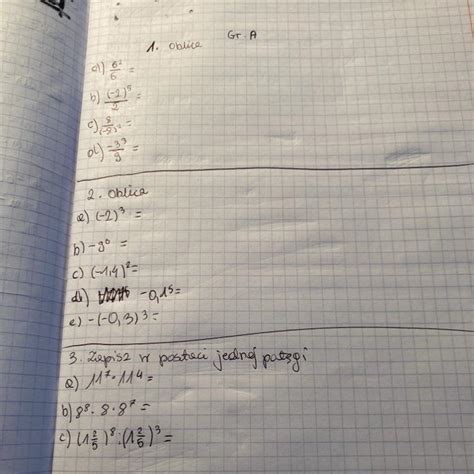 Gr. A
1. Oblicz
a) 6²/6 =
b) (-2)⁵/2 =
c) 8/(-2)² =
d) -3³/9 =
2. Oblicz
a) (-2)³ =
b) -9⁰ =
c) (-1,4)² =
d) -0,1⁵ =
e) -(-0,3)³ =
3. Zapisz w postaci jednej potęgi
a) 11⁷ · 11⁴ =
b) 8⁸ · 8 · 8⁷ =
c) (1 2/5)⁸ : (1 2/5)³ =